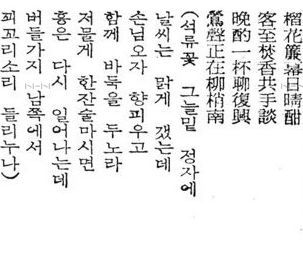 榴花簾幕日晴酣
客至焚香共手談
晩酌一杯聊復興
鶯聲正在柳梢南
(석류꽃 그늘밑 정자에
날씨는 맑게 갰는데
손님오자 향피우고
함께 바둑을 두노라
저물게 한잔술마시면
흥은 다시 일어나는데
버들가지 남쪽에서
피꼬리소리 들리누나)